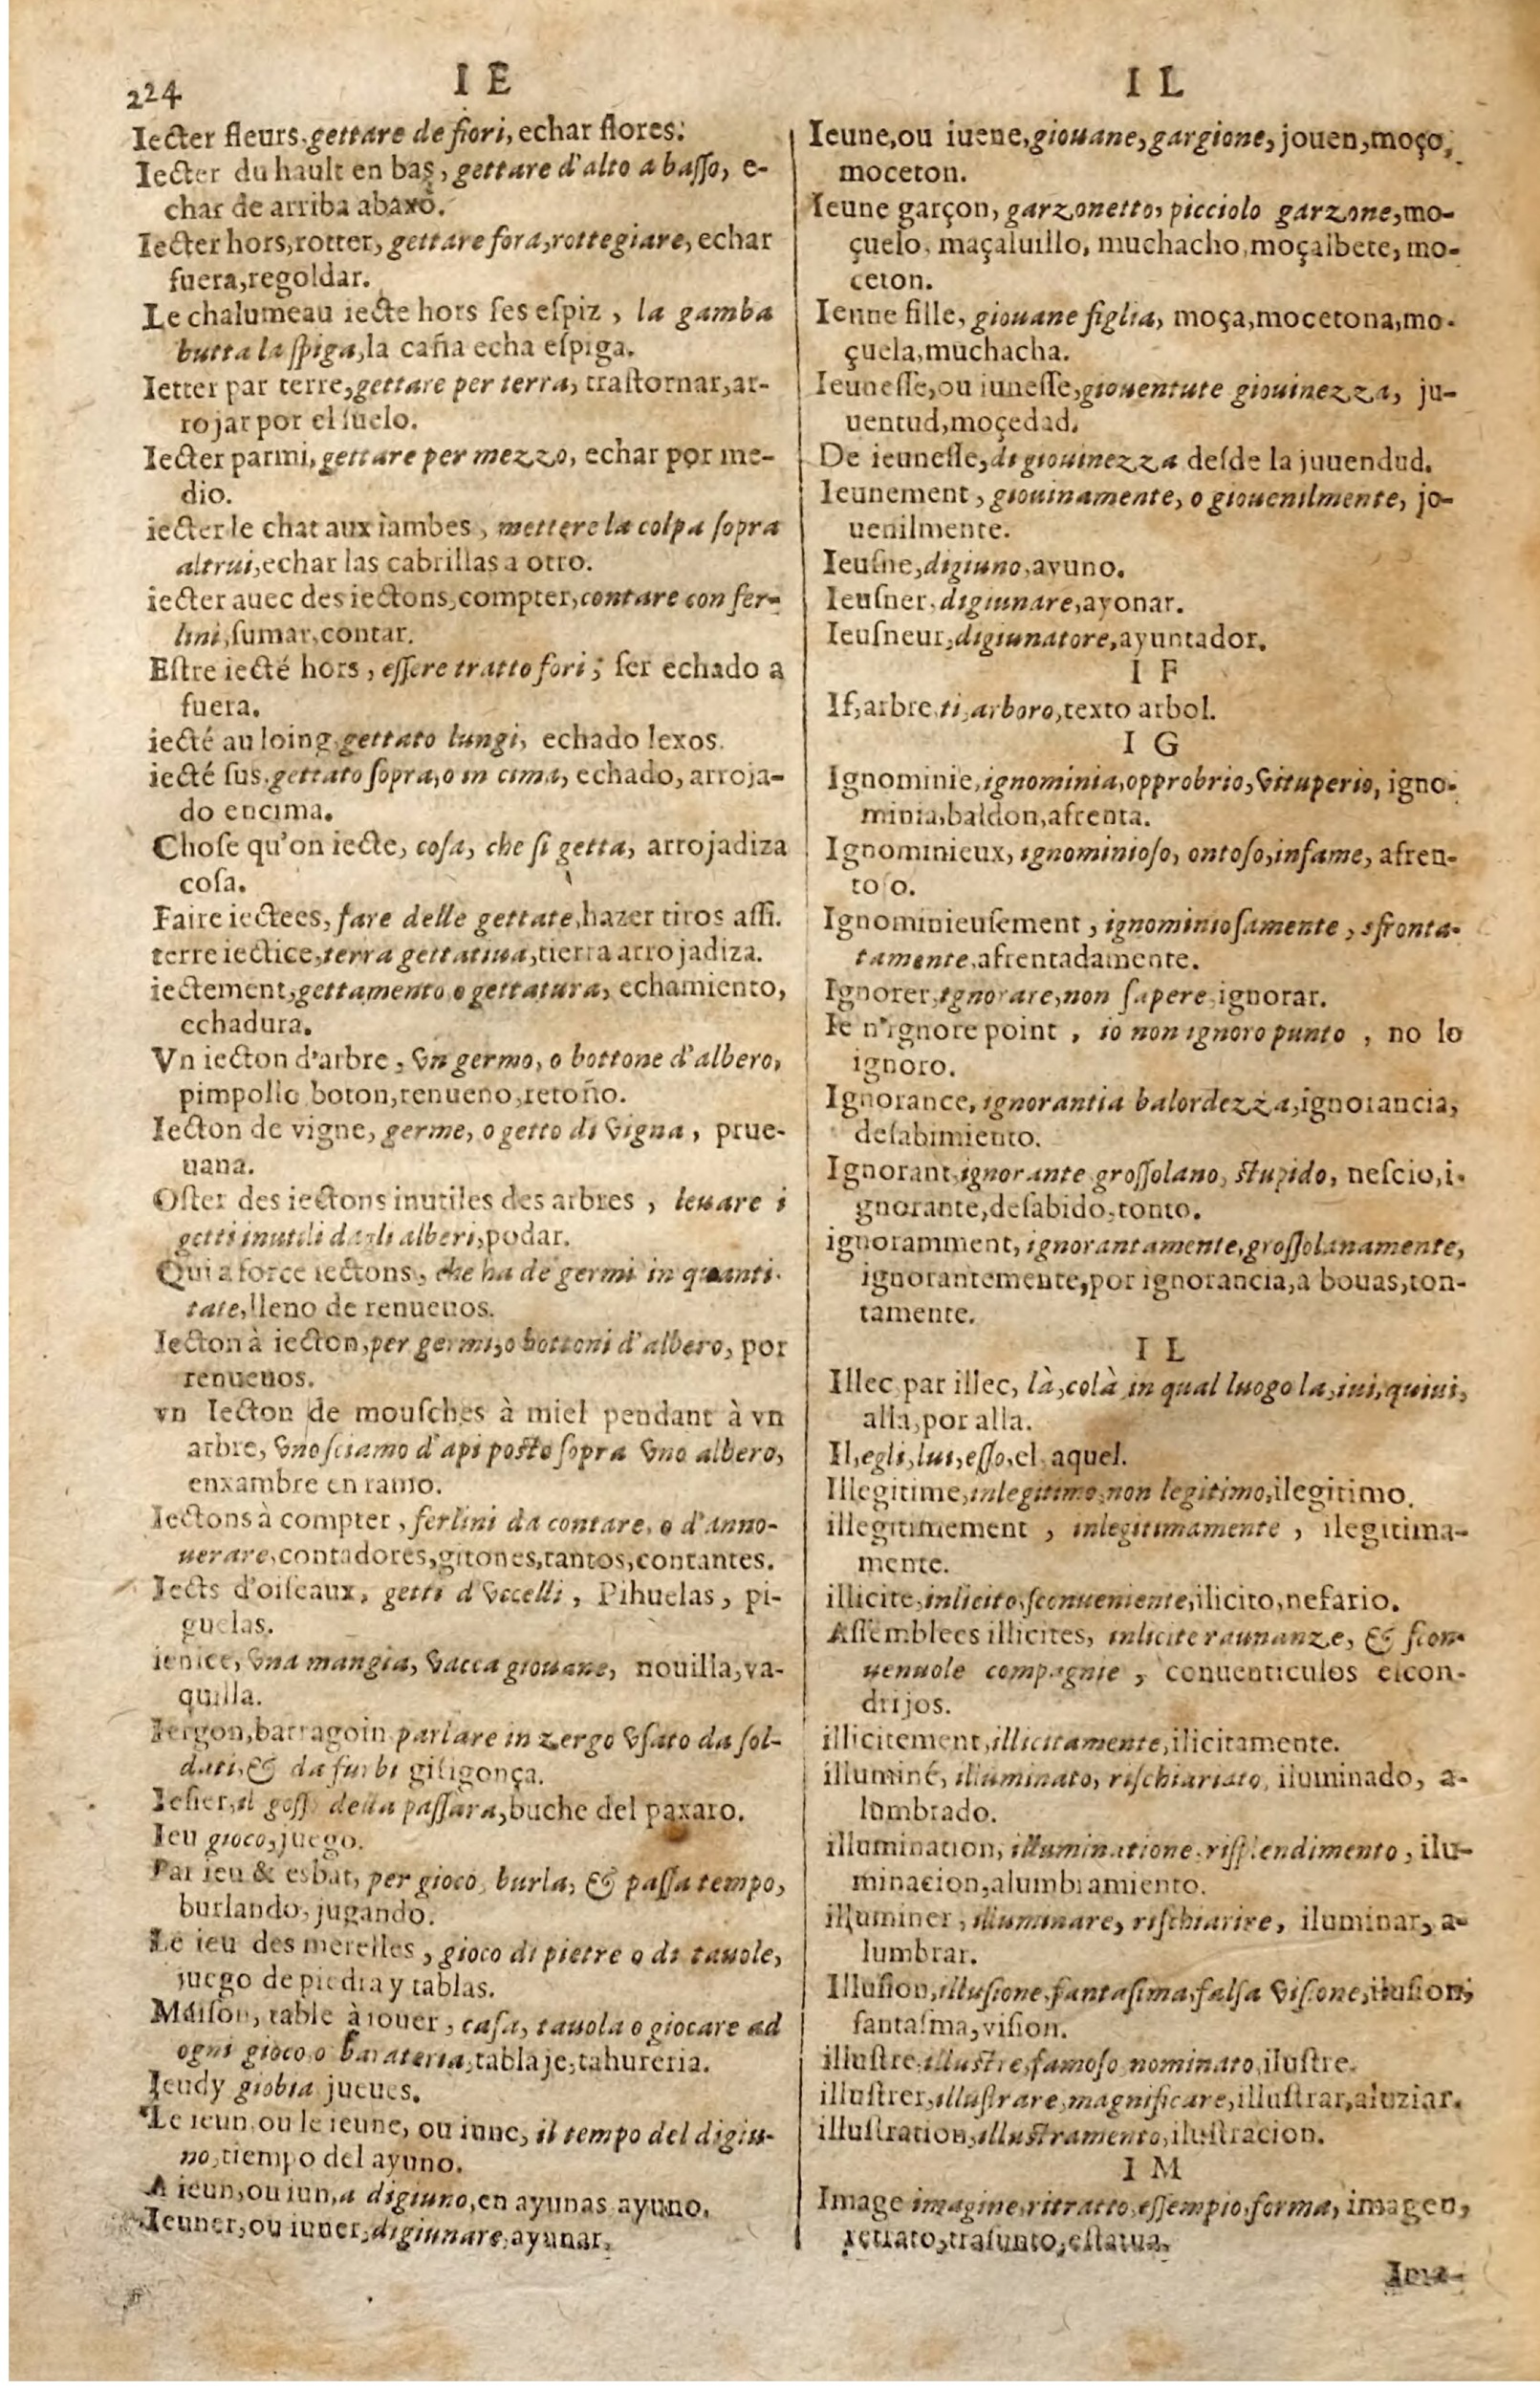 224
I E
Iecter fleurs, gettare de fiori, echar flores.
Iecter du hault en bas, gettare d'alto a baſſo, e-
char de arriba abaxo.
Iecter hors, rotter, gettare fora, rottegiare, echar
fuera, regoldar.
Le chalumeau iecte hors ſes eſpiz, la gamba
butta la ſpiga, la caña echa eſpiga.
Ietter par terre, gettare per terra, traſtornar, ar-
rojar por el ſuelo.
Iecter parmi, gettare per mezzo, echar por me-
dio.
iecter le chat aux iambes, mettere la colpa ſopra
altrui, echar las cabrillas a otro.
iecter auec des iectons, compter, contare con fer-
lini, ſumar, contar.
Eſtre iecté hors, eſſere tratto fori, ſer echado a
fuera.
iecté au loing, gettato lungi, echado lexos.
iecté ſus, gettato ſopra, o in cima, echado, arroja-
do encima.
Choſe qu'on iecte, coſa, che ſi getta, arrojadiza
coſa.
Faire iectees, fare delle gettate, hazer tiros aſſi.
terre iectice, terra gettatiua, tierra arrojadiza.
iectement, gettamento o gettatura, echamiento,
echadura.
Vn iecton d'arbre, vn germo, o bottone d'albero,
pimpollo boton, renueno, retoño.
Iecton de vigne, germe, o getto di vigna, prue-
uana.
Oſter des iectons inutiles des arbres, leuare i
getti inutili dagli alberi, podar.
Qui a force iectons, che ha de germi in quanti-
tate, lleno de renueuos.
Iecton à iecton, per germi, o bottoni d'albero, por
renueuos.
vn Iecton de mouſches à miel pendant à vn
arbre, vno ſciamo d'api poſto ſopra vno albero,
enxambre en ramo.
Iectons à compter, ferlini da contare, o d'anno-
uerare, contadores, gitones, tantos, contantes.
Iects d'oiſeaux, getti d'vccelli, Pihuelas, pi-
guelas.
ienice, vna mangia, vacca giouane, nouilla, va-
quilla.
Iergon, barragoin parlare in zergo vſato da ſol-
dati, & da furbi gitigonça.
Ieſier, il goſſo della paſſara, buche del paxaro.
Ieu gioco, juego.
Par ieu & esbat, per gioco, burla, & paſſa tempo,
burlando, jugando.
Le ieu des merelles, gioco di pietre o di tauole,
juego de piedra y tablas.
Maiſon, table à iouer, caſa, tauola o giocare ad
ogni gioco, o barateria, tablaje, tahureria.
Jeudy giobia jueues.
Le ieun, ou le ieune, ou iune, il tempo del digiu-
no, tiempo del ayuno.
A ieun, ou iun, a digiuno, en ayunas ayuno.
Ieuner, ou iuner, digiunare, ayunar.
I L
Ieune, ou iuene, giouane, gargione, jouen, moço,
moceton.
Ieune garçon, garzonetto, picciolo garzone, mo-
çuelo, maçaluillo, muchacho, moçalbete, mo-
ceton.
Ieune fille, giouane figlia, moça, mocetona, mo-
çuela, muchacha.
Ieuneſſe, ou iuneſſe, giouentute giouinezza, ju-
uentud, moçedad.
De ieuneſſe, di giouinezza deſde la juuendud.
Ieunement, giouinamente, o giouenilmente, jo-
uenilmente.
Ieuſne, digiuno, ayuno.
Ieuſner, digiunare, ayonar.
Ieuſneur, digiunatore, ayuntador.
I F
If, arbre, ti, arboro, texto arbol.
I G
Ignominie, ignominia, opprobrio, vituperio, igno-
minia, baldon, afrenta.
Ignominieux, ignominioſo, ontoſo, infame, afren-
toſo.
Ignominieuſement, ignominioſamente, sfronta-
tamente, afrentadamente.
Ignorer, ignorare, non ſapere, ignorar.
Ie n'ignore point, io non ignoro punto, no lo
ignoro.
Ignorance, ignorantia balordezza, ignorancia,
deſabimiento.
Ignorant, ignorante groſſolano, ſtupido, neſcio, i-
gnorante, deſabido, tonto.
ignoramment, ignorantamente, groſſolanamente,
ignorantemente, por ignorancia, a bouas, ton-
tamente.
I L
Illec, par illec, là, colà in qual luogo la, iui, quiui,
alla, por alla.
Il, egli, lui, eſſo, el, aquel.
Illegitime, inlegitimo, non legitimo, ilegitimo.
illegitimement, inlegitimamente, ilegitima-
mente.
illicite, inlicito, ſconueniente, ilicito, nefario.
Aſſemblees illicites, inlicite raunanze, & ſcon-
ueneuole compagnie, conuenticulos eſcon-
drijos.
illicitement, illicitamente, ilicitamente.
illuminé, illuminato, riſchiariato, iluminado, a-
lumbrado.
illumination, illuminatione, riſplendimento, ilu-
minacion, alumbramiento.
illuminer, illuminare, riſchiarire, iluminar, a-
lumbrar.
Illuſion, illuſione, fantaſima, falſa viſione, iluſion,
fantaſma, viſion.
illuſtre, illuſtre, famoſo nominato, iluſtre.
illuſtrer, illuſtrare, magnificare, illuſtrar, aluziar.
illuſtration, illuſtramento, iluſtracion.
I M
Image imagine, ritratto, eſſempio, forma, imagen,
retrato, traſunto, eſtatua.
Ima-